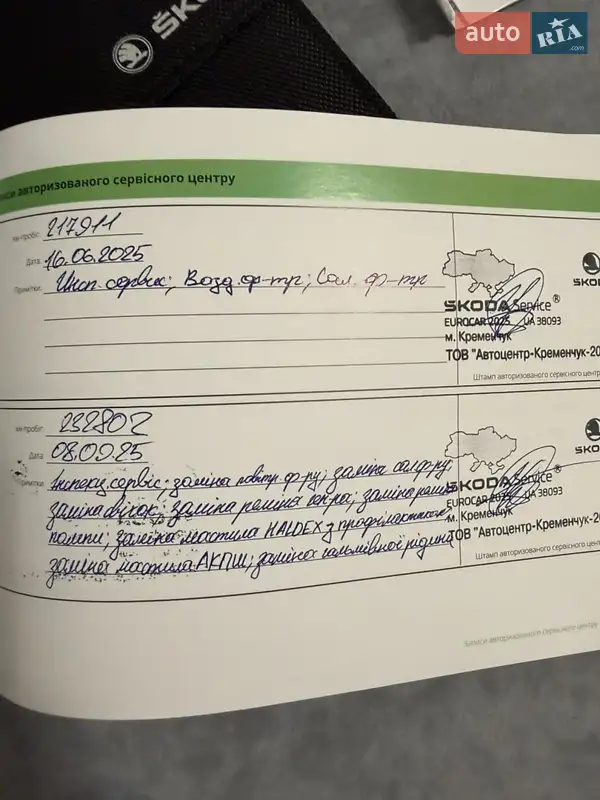 ŠKO
auto RIA .com
иси авторизованого сервісного центру
км пробіг: 217911
Дата 16.06.2025
Примітки: Инсп. сервис; Возд. ф-тр; Сал. ф-тр
ŠKODA Service®
EUROCAR 2025 UA 38093
м. Кременчук
ТОВ "Автоцентр-Кременчук-20
Штамп авторизованого сервісного центр
SKOD
км пробіг: 232802
Дата 08.09.25
Інспекц. сервіс; заміна повітр. ф-ру; заміна сал ф-ру;
заміна свічок; заміна ременя ген-ра; заміна ременя
помпи; заміна мастила HALDEX з профілактикою;
заміна мастила АКПП; заміна гальмівної рідини
ŠKODA Service®
EUROCAR UA 38093
м. Кременчук
ТОВ "Автоцентр-Кременчук-20
Штамп авторизованого сервісного цент
SKO
Записи авторизованого сервісного центру